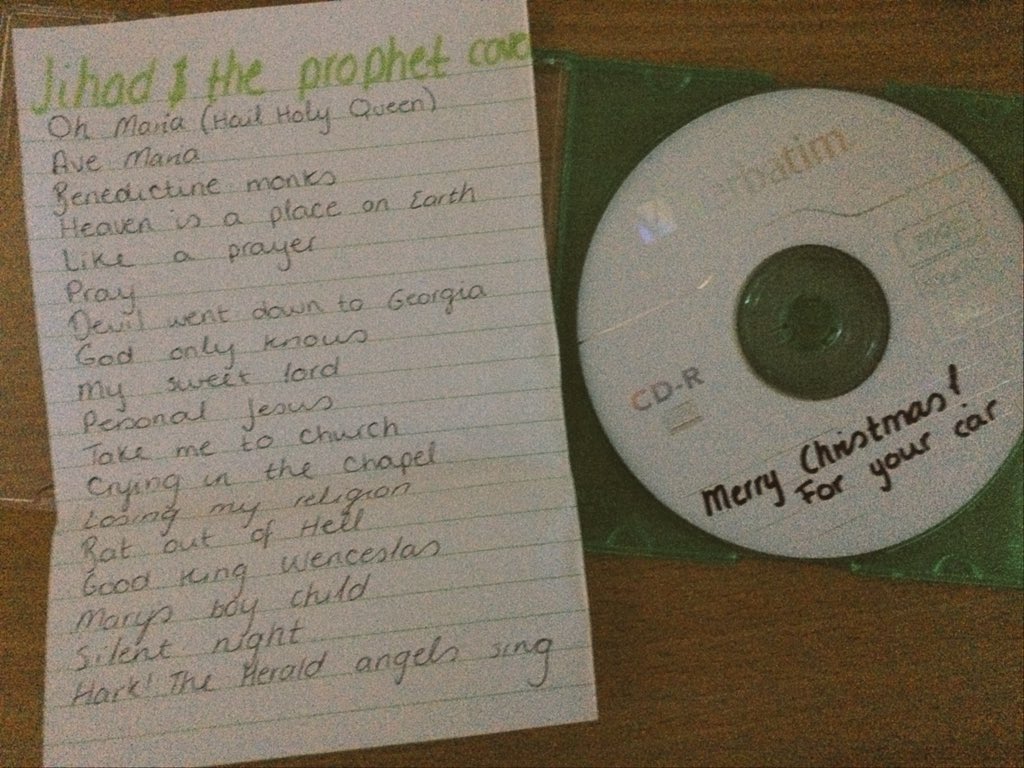 Jihad & the prophet cover
Oh Maria (Hail Holy Queen)
Ave Maria
Benedictine monks
Heaven is a place on Earth
Like a prayer
Pray
Devil went down to Georgia
God only knows
My sweet lord
Personal Jesus
Take me to church
Crying in the chapel
Losing my religion
Bat out of Hell
Good King Wenceslas
Marys boy child
Silent night
Hark! The Herald angels sing
Verbatim
CD-R
Merry Christmas!
For your car